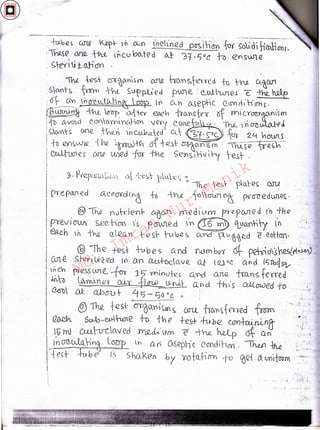 tubes are kept in an inclined position for solidification.
These are the incubated at 37.5°c to ensure
sterilization.
The test organism are transferred to the agar
slants from the supplied pure cultures c̄ the help
of an inoculating loop in an aseptic conditions.
Burning the loop after each transfer of microorganism
to avoid contamination very carefully. The inoculated
slants are then incubated at 37.5°C for 24 hours
to ensure the growth of test organism. These fresh
cultures are used for the sensitivity test.
3. Preparation of test plates:
The test plates are
prepared according to the following procedures.
ⓐ The nutrient agar medium prepared in the
previous section is poured in 15 ml quantity in
each in the clean test tubes and plugged c̄ cotton.
ⓑ The test tubes and number of petridishes
are sterilized in an autoclave at 121°c and
inch pressure for 15 minutes and are transferred
into laminer air flow unit and this allowed to
cool at about 45-50°c.
ⓒ The test organisms are transferred from
each sub-culture to the test tube containing
15 ml autoclaved medium c̄ the help of an
inoculating loop in an aseptic condition. Then the
test tube is shaken by rotation to get a uniform